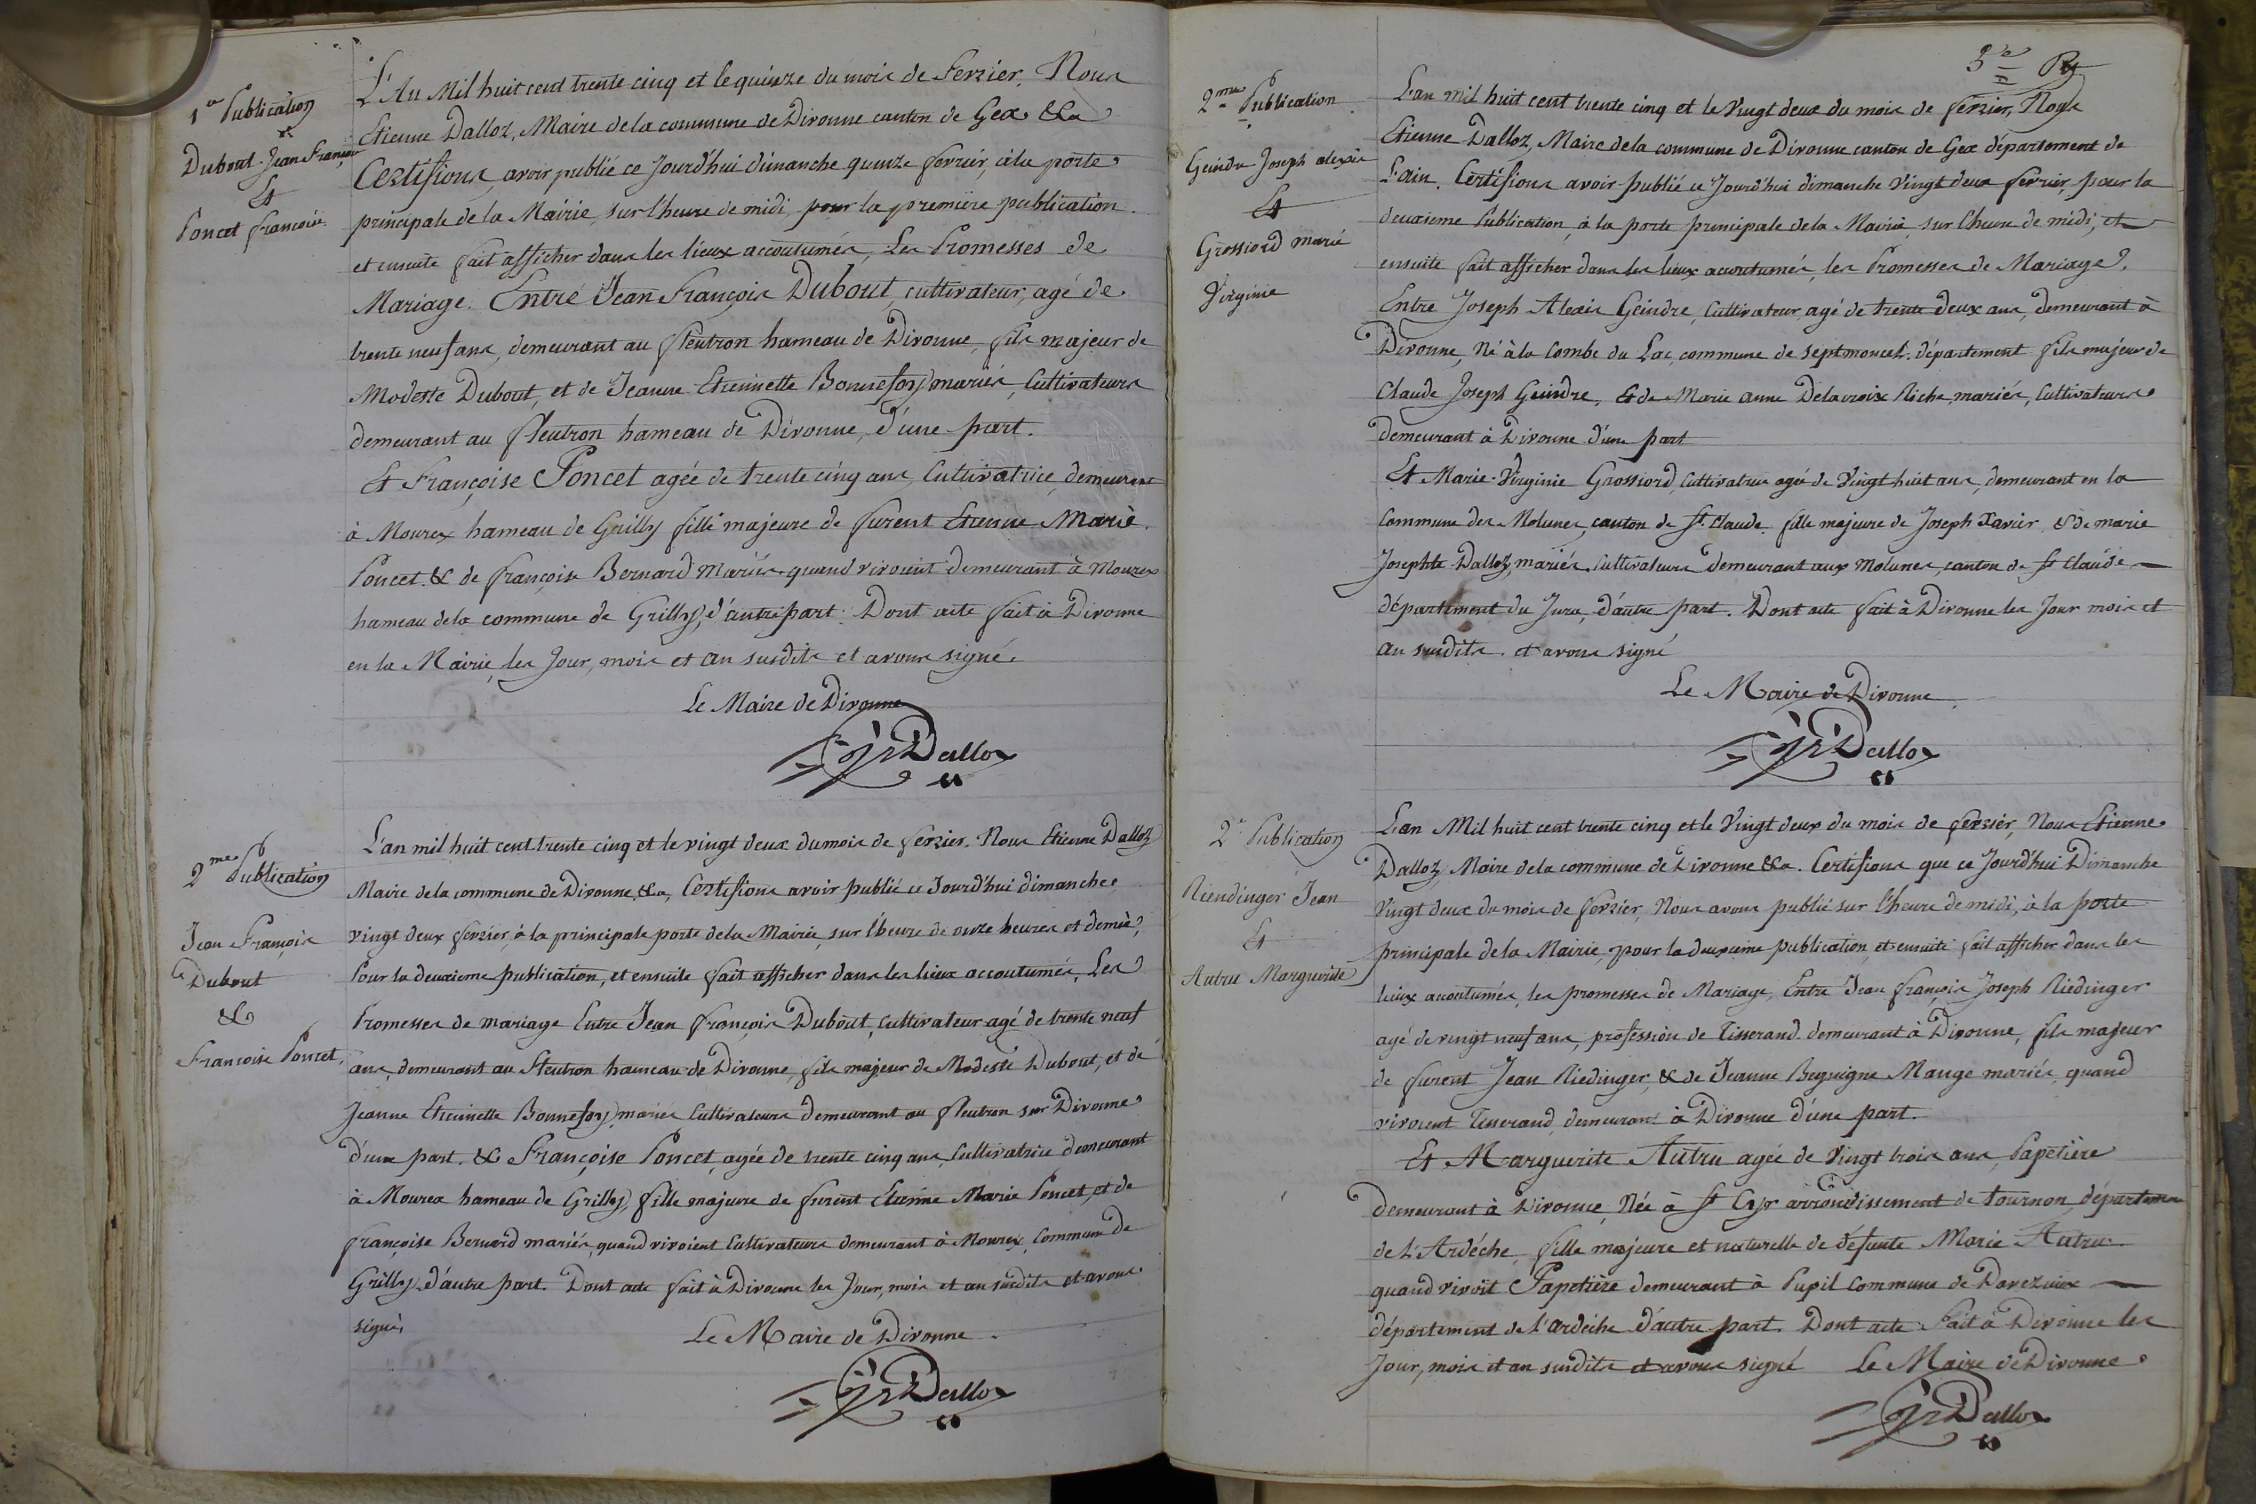 1e Publication
de
Dubout Jean François
Et
Poncet françoise
L'An Mil huit cent trente cinq et le quinze du mois de Fevrier. Nous
Etienne Dalloz, Maire de la commune de Divonne canton de Gex &a
Certifions avoir publié ce Jourd'hui dimanche quinze fevrier, à la porte
principale de la Mairie, sur l'heure de midi, pour la première publication
et ensuite fait afficher dans les lieux accoutumés, Les Promesses de
Mariage. Entre Jean François Dubout, cultivateur, agé de
trente neuf ans, demeurant au fleutron hameau de Divonne, fils majeur de
Modeste Dubout, et de Jeanne Etiennette Bonnefoy mariés, Cultivateurs
demeurant au fleutron hameau de Divonne, d'une part.
Et Françoise Poncet agée de trente cinq ans, Cultivatrice, demeurant
à Mourex hameau de Grilly fille majeure de furent Etienne Marie
Poncet & de françoise Bernard Mariés quand vivoient demeurant à Mourex
hameau de la commune de Grilly, d'autre part. Dont acte fait à Divonne
en la Mairie, les Jour, mois et an susdits et avons signé.
Le Maire de Divonne
Dalloz
2me Publication
Jean François
Dubout
&
Françoise Poncet
L'an mil huit cent trente cinq et le vingt deux du mois de fevrier. Nous Etienne Dalloz
Maire de la commune de Divonne, &a, Certifions avoir publié ce Jourd'hui dimanche
vingt deux fevrier, à la principale porte de la Mairie, sur l'heure de onze heures et demie,
Pour la deuxieme publication, et ensuite fait afficher dans les lieux accoutumés, Les
Promesses de mariage Entre Jean françois Dubout, Cultivateur agé de trente neuf
ans, demeurant au fleutron hameau de Divonne, fils majeur de Modeste Dubout, et de
Jeanne Etiennette Bonnefoy, mariés Cultivateurs demeurant au fleutron sur Divonne
d'une part. & Françoise Poncet, agée de trente cinq ans, Cultivatrice demeurant
à Mourex hameau de Grilly, fille majeure de furent Etienne Marie Poncet, et de
françoise Bernard mariés, quand vivoient Cultivateurs demeurant à Mourex, Commune de
Grilly, d'autre part. Dont acte fait à Divonne les Jour, mois et an susdits et avons
signé,
Le Maire de Divonne.
Dalloz
3e
2me Publication
Geindre Joseph alexis
Et
Grossiord marie
Virginie
L'an mil huit cent trente cinq et le Vingt deux du mois de fevrier, Nous
Etienne Dalloz, Maire de la commune de Divonne canton de Gex département de
L'ain. Certifions avoir publié ce Jourd'hui dimanche Vingt deux fevrier, pour la
deuxieme Publication, à la porte principale de la Mairie sur l'heure de midi, et
ensuite fait afficher dans les lieux accoutumés, les Promesses de Mariage.
Entre Joseph Alexis Geindre, Cultivateur, agé de trente Deux ans, demeurant à
Divonne, Né à la Combe du Lac, commune de septmoncel département fils majeur de
Claude Joseph Geindre, & de Marie anne Delacroix Riche, mariés, Cultivateurs
Demeurant à Divonne d'une part
Et Marie Virginie Grossiord, Cultivatrice agée de Vingt huit ans, demeurant en la
Commune des Molunes, canton de St Claude fille majeure de Joseph Xavier & de marie
Josephte Dalloz, mariés Cultivateurs Demeurant aux Molunes, canton de St Claude
département du Jura, d'autre part. Dont acte fait à Divonne les Jour mois et
an susdits et avons signé
Le Maire de Divonne
Dalloz
2e Publication
Riendinger Jean
Et
Autru Marguerite
L'an Mil huit cent trente cinq et le Vingt deux du mois de fevrier, Nous Etienne
Dalloz, Maire de la commune de Divonne &a. Certifions que ce Jourd'hui Dimanche
Vingt deux du mois de fevrier, Nous avons publié sur l'heure de midi, à la porte
principale de la Mairie pour la deuxieme publication, et ensuite fait afficher dans les
lieux accoutumés, les promesses de Mariage, Entre Jean françois Joseph Riedinger
agé de vingt neuf ans, profession de Tisserand demeurant à Divonne, fils majeur
de furent Jean Riedinger, & de Jeanne Beguigne Mange mariés, quand
vivoient Tisserand, demeurant à Divonne d'une part.
Et Marguerite Autru agée de Vingt trois ans, Papetière
Demeurant à Divonne, Née à St Cyr arrondissement de Tournon, département
de L'Ardéche, fille majeure et naturelle de défunte Marie Autru
quand vivoit Papetière demeurant à Pupil Commune de Davezieux
département de L'ardèche d'autre part. Dont acte Fait à Divonne les
Jour, mois et an susdits et avons signé Le Maire de Divonne
Dalloz